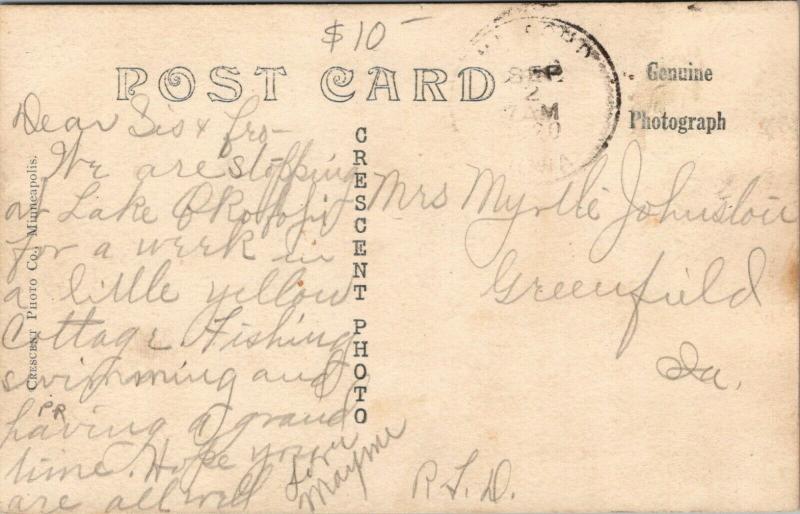 $10-
POST CARD
SEP
2
7 AM
Genuine
Photograph
Dear Sis & Bro-
We are stopping
at Lake Okoboji
for a week in
a little yellow
Cottage. Fishing
swimming and
having a grand
time. Hope you
are all well
Love
Mayme
CRESCENT PHOTO
CRESCENT PHOTO CO., Minneapolis.
PR
Mrs Myrtle Johnston
Greenfield
Ia.
R.F.D.